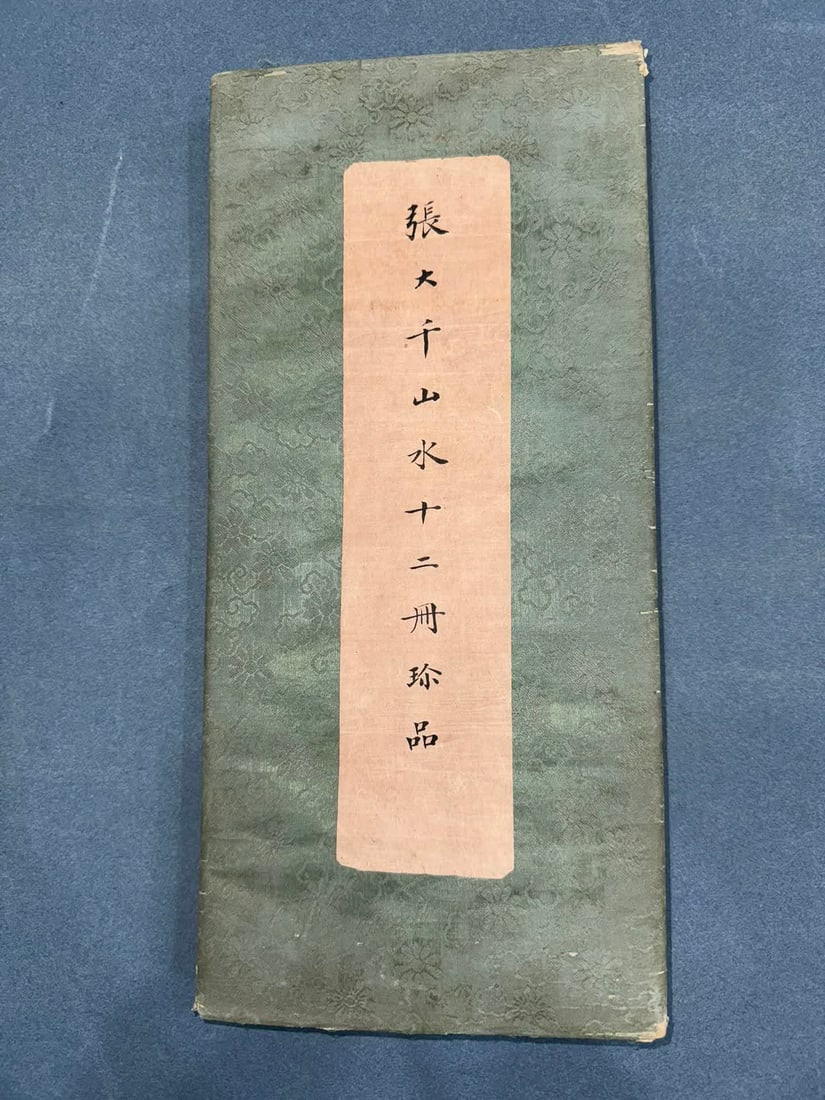 張大千山水十二冊珍品